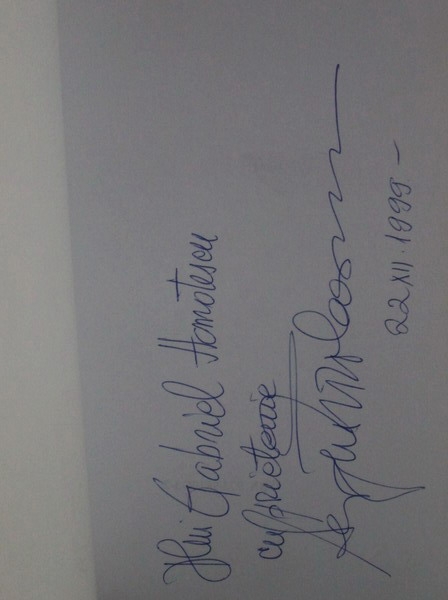 Lui Gabriel Homotescu
cu prietenie
22 XII. 1999 –